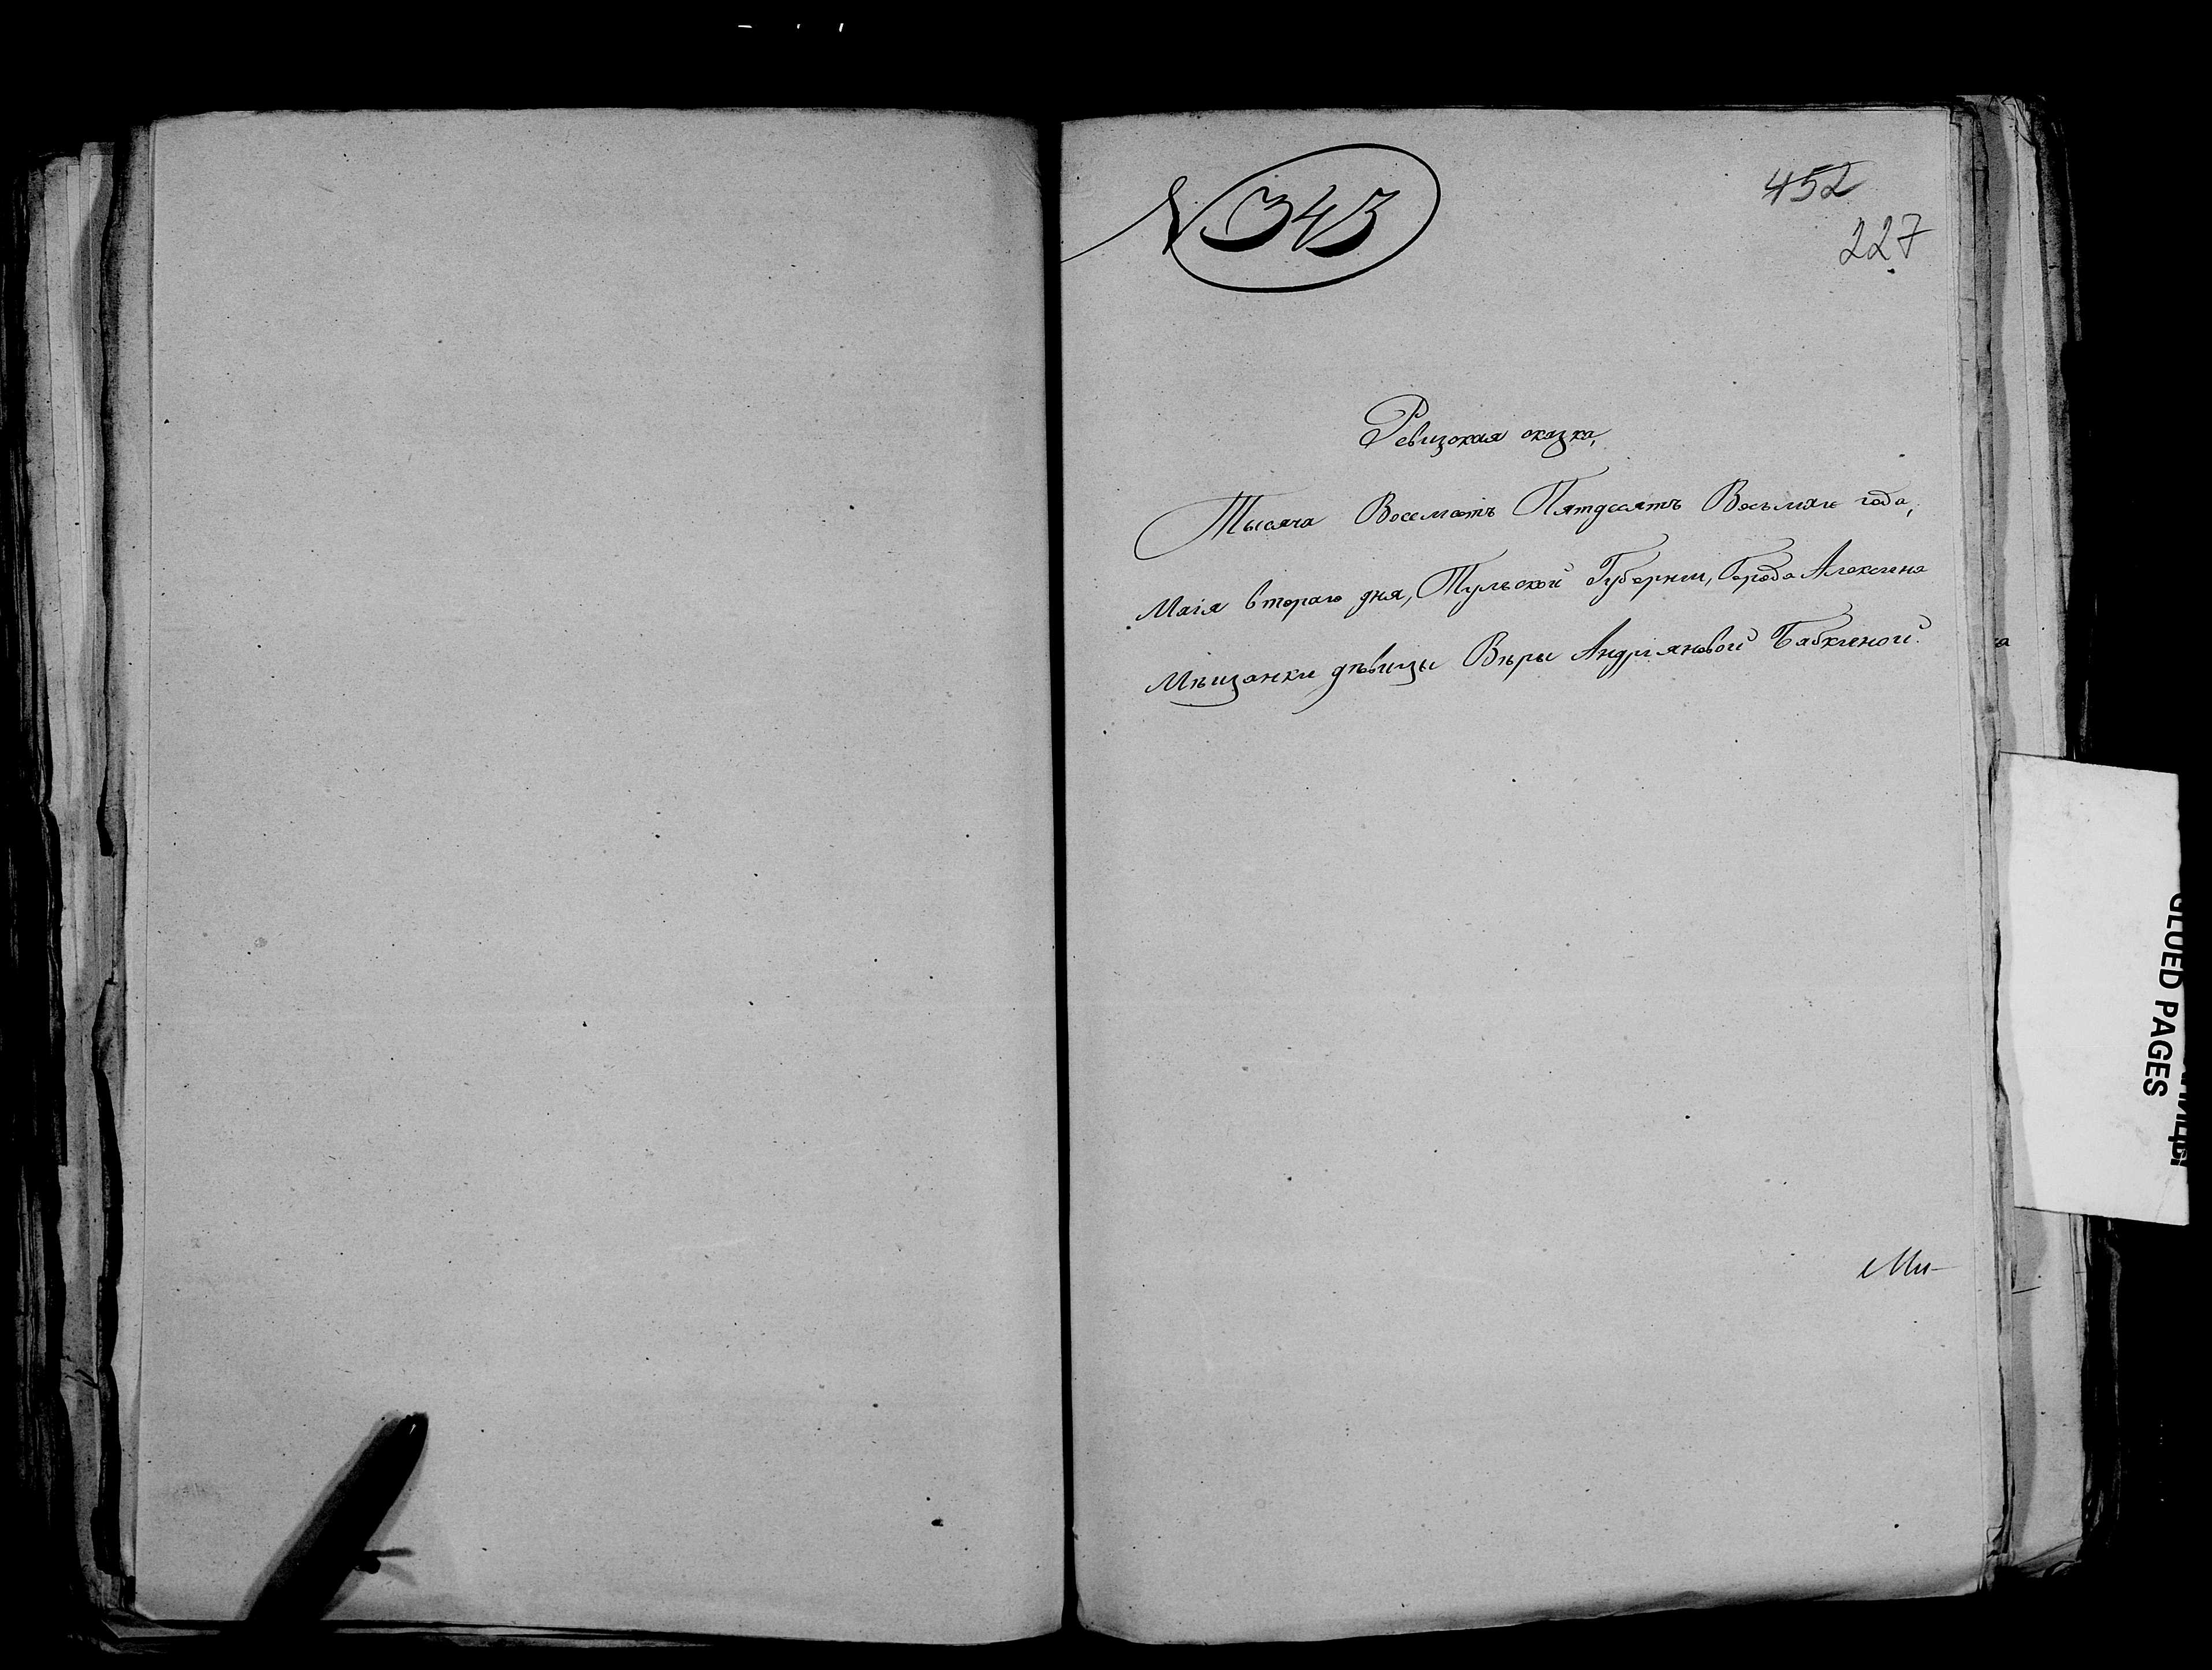 N 343
452
227
Ревизская сказка,
Тысяча Восемсотъ Пятдесятъ Восьмаго года,
Маія втораго дня, Тульской Губерніи, Города Алексина
Мѣщанки дѣвицы Вѣры Андріяновой Бабкиной.
GLUED PAGES